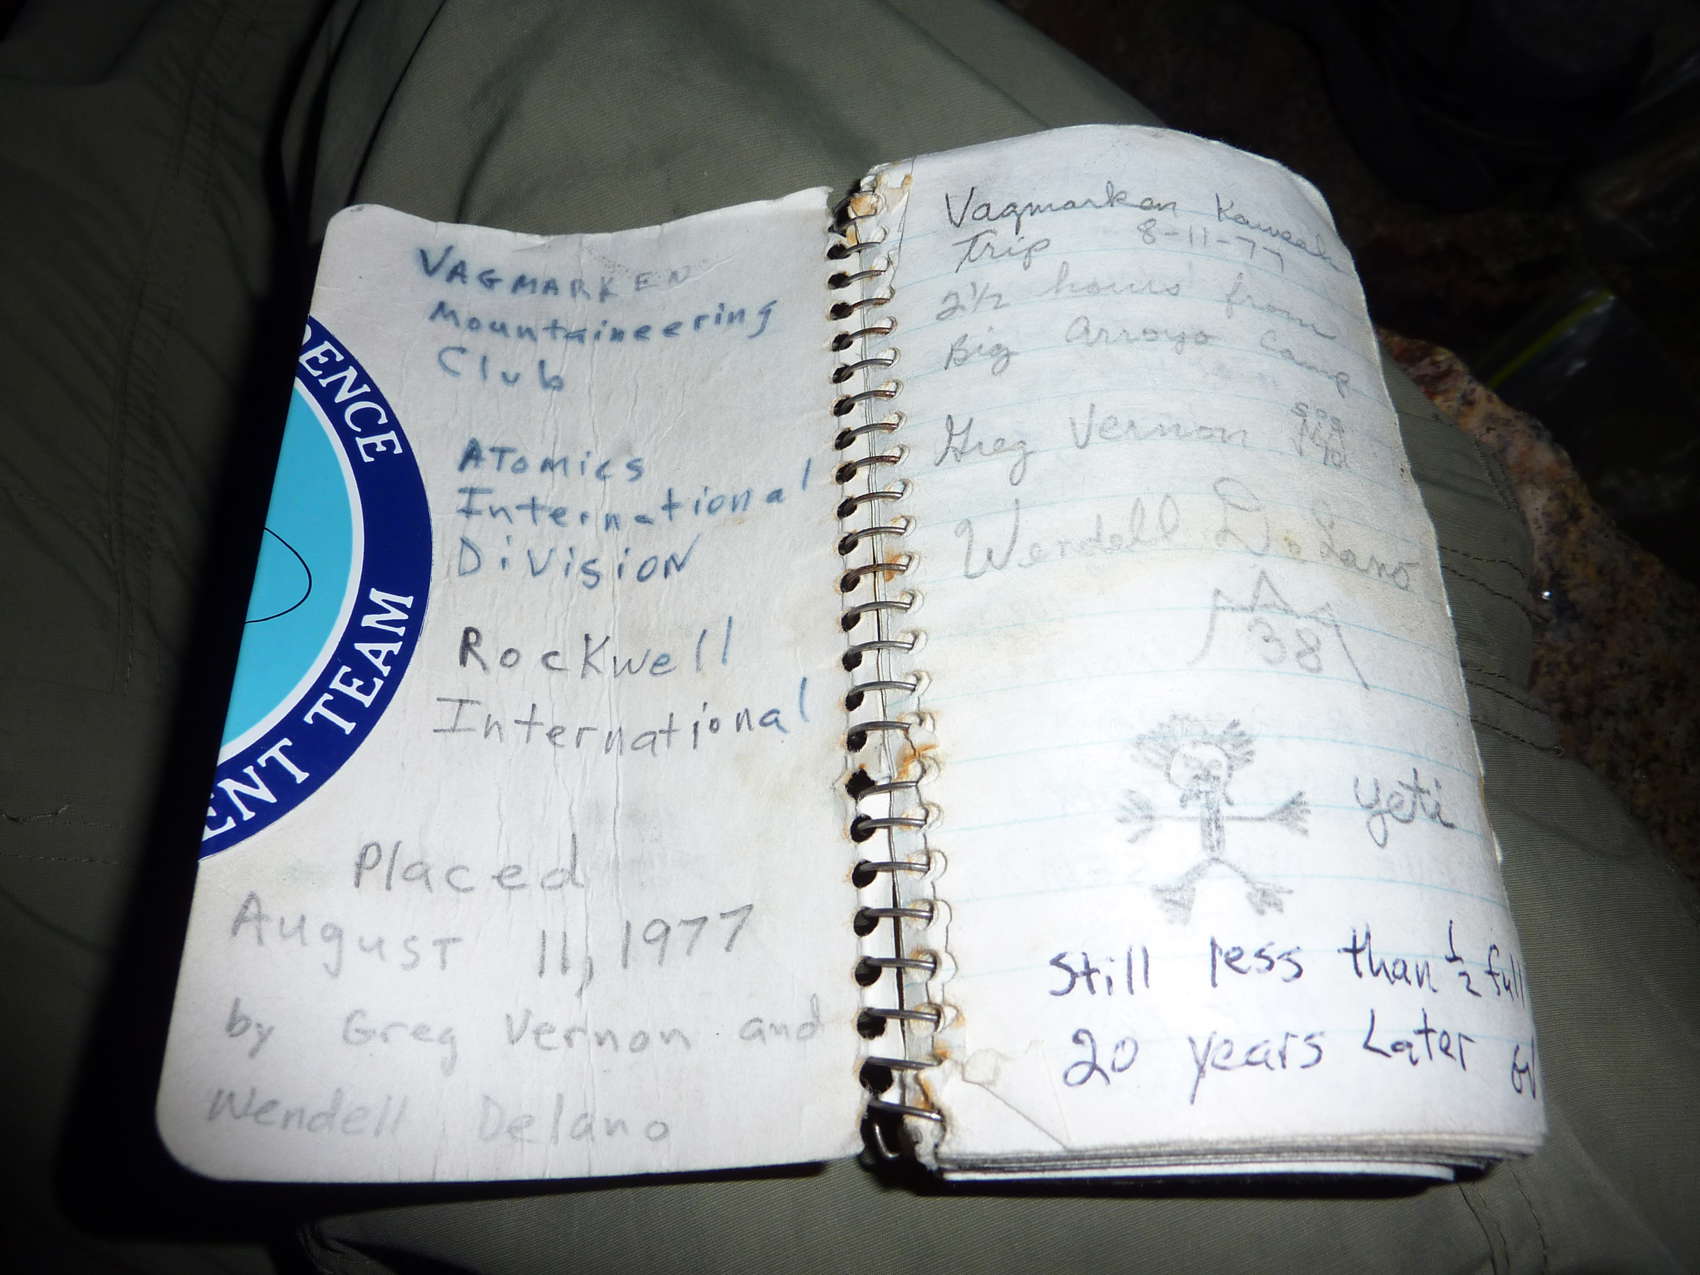 VAGMARKEN
Mountaineering
Club
ATOMICS
International
DIVISION
Rockwell
International
Placed
August 11, 1977
by Greg Vernon and
Wendell Delano
DENCE
ENT TEAM
Vagmarken Kaweah
Trip 8-11-77
2 1/2 hours from
Big Arroyo Camp
Greg Vernon
Wendell DeLano
38
yeti
Still less than 1/2 full
20 years Later